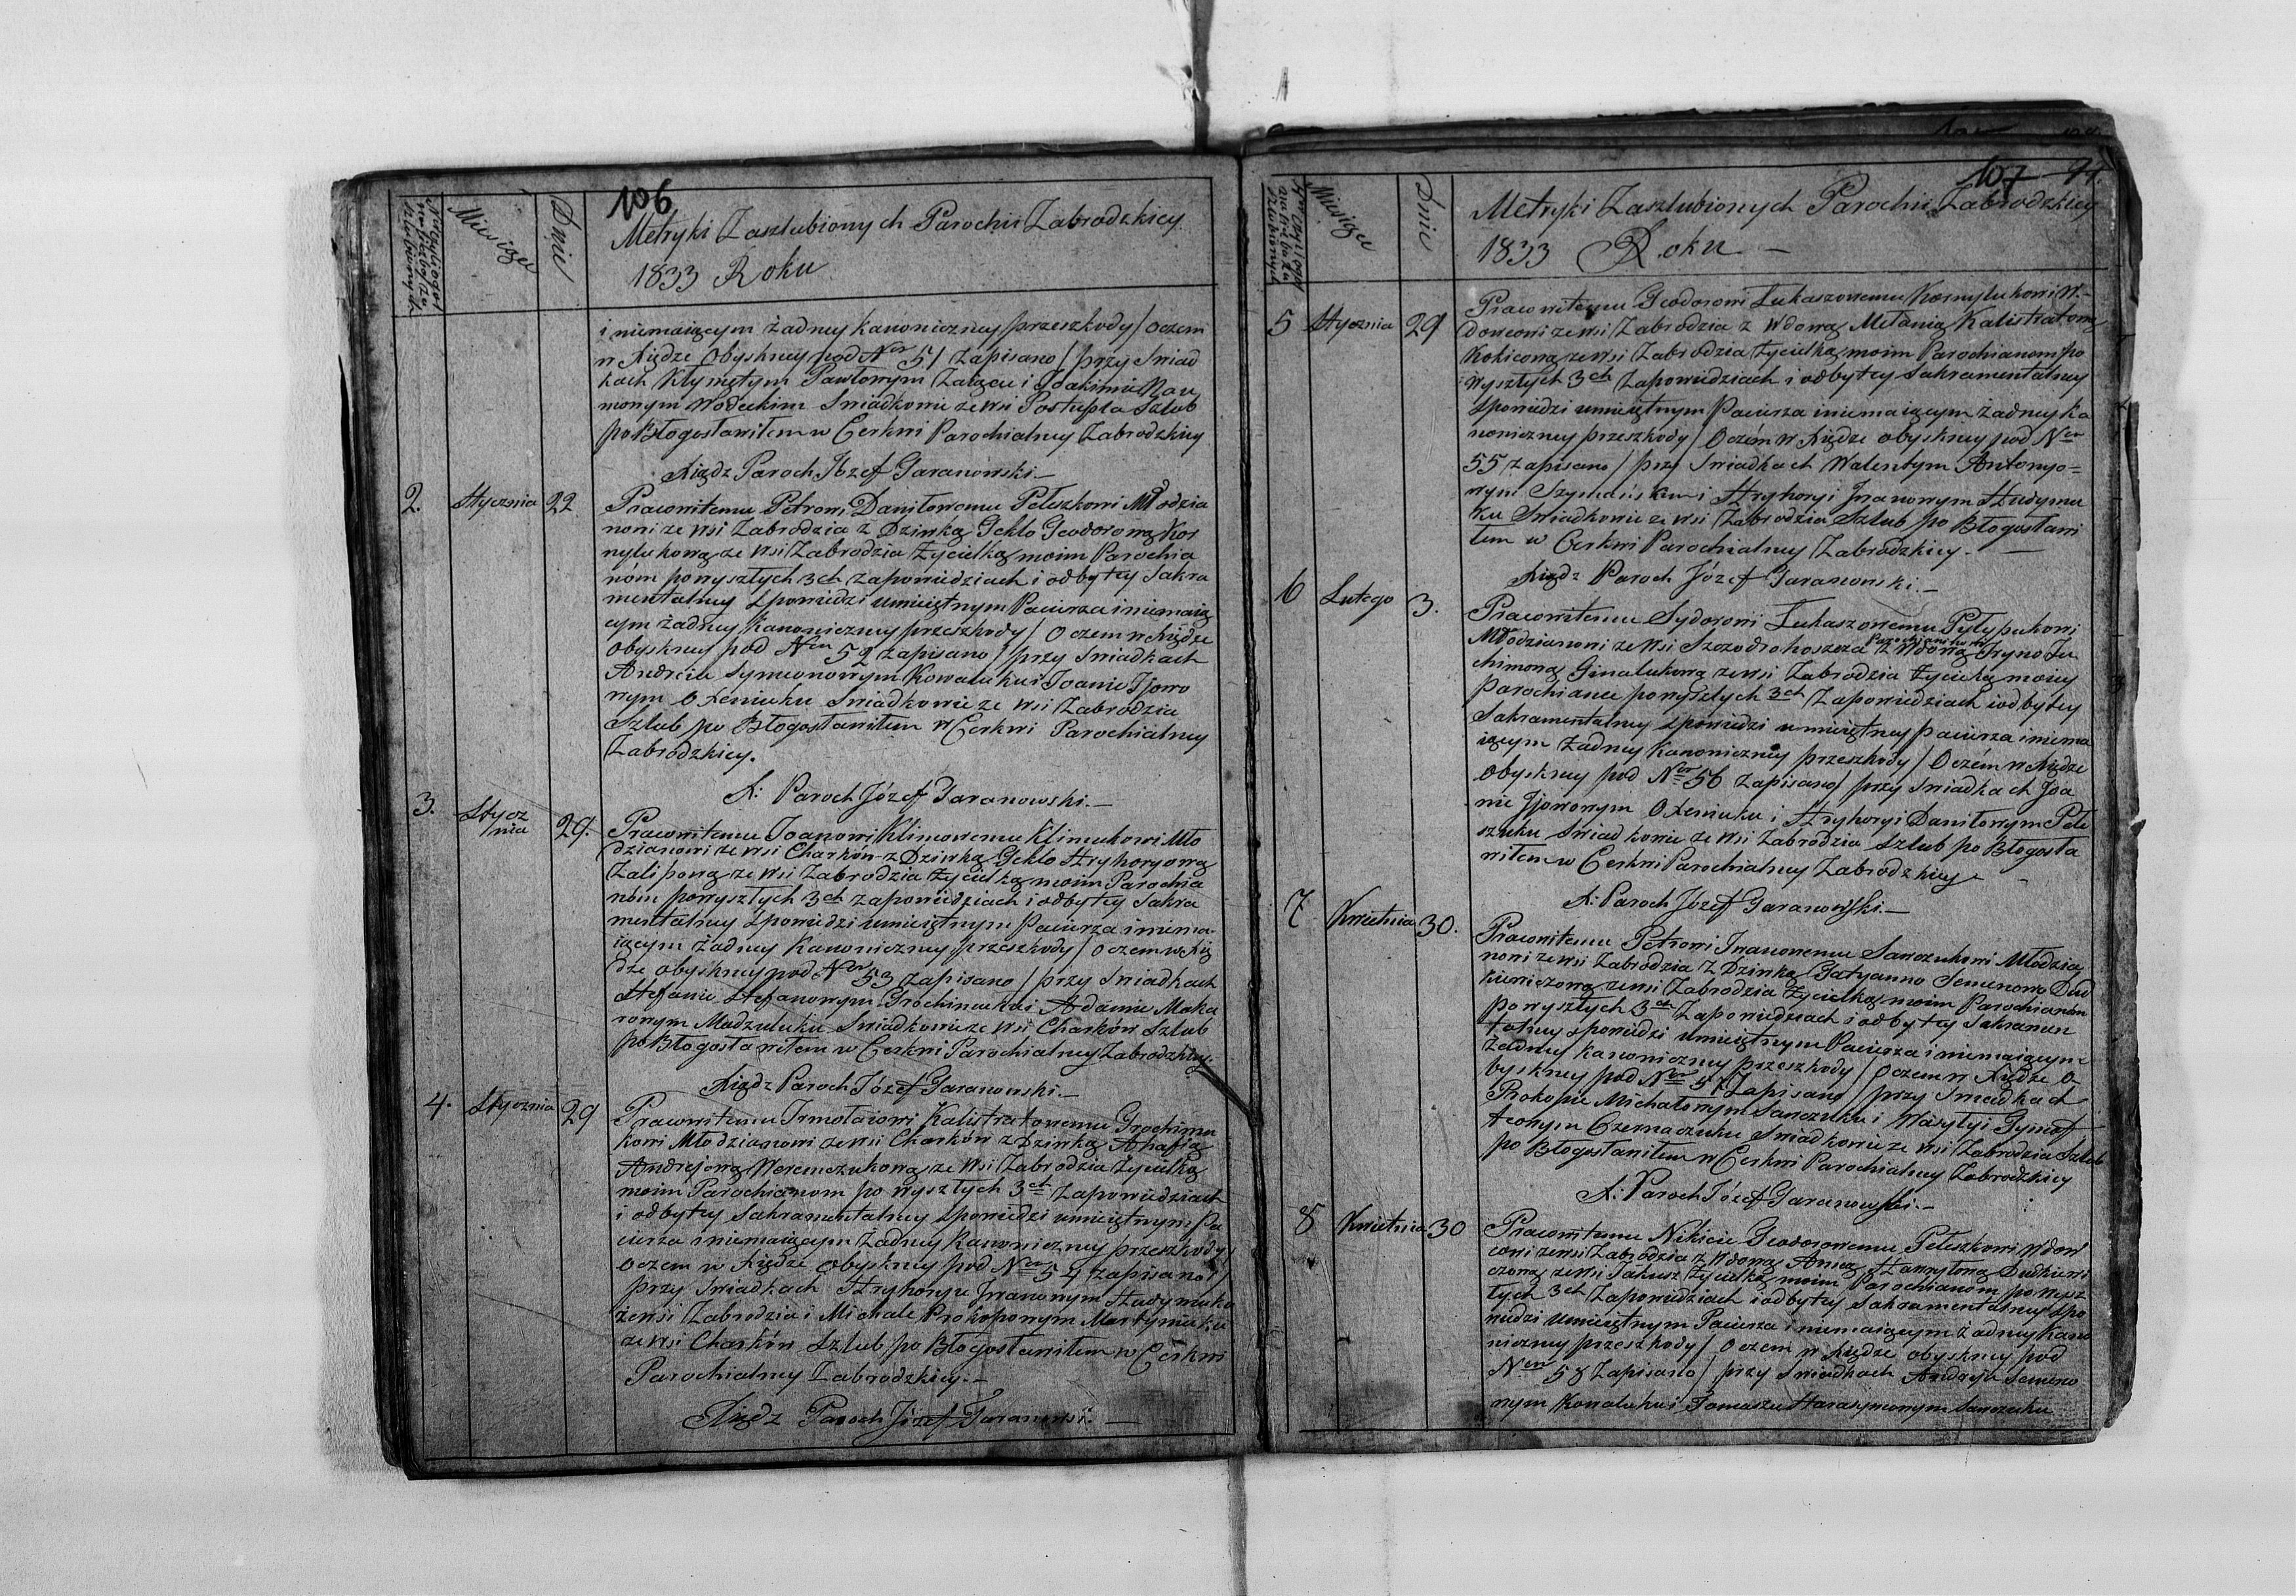 106
Miesiąca
Dnie
Metryki Zaszlubionych Parochii Zabrodzkiey
1833 Roku
i niemaiącym żadney kanoniczney przeszkody / oczem
w Xiędze obyskney pod Nem 51 zapisano / przy Swiad
kach Kłymętym Pawłowym Zaiącu i Joakimie Nau
mowym Wodeckim Swiadkowie ze wsi Postupla Szlub
pobłogosławiłem w Cerkwi Parochialney Zabrodzkiey
Xiądz Paroch Józef Taranowski.—
2. Stycznia 22 Pracowitemu Petrowi Daniłowemu Peleszkowi Młodzia
nowi ze wsi Zabrodzia z Dziwką Jekło Teodorową Kor
nylukową ze wsi Zabrodzia Życielką moim Parochia
nóm powyszłych 3ch zapowiedziach i odbytey Sakra
mentalney spowiedzi umieiętnym Pacierza i niemaią
cym żadney kanoniczney przeszkody / O czem w Xiędze
obyskney pod Nem 52 zapisano / przy Swiadkach
Andreiu Symeonowym Kowaluku i Joanie Jjowo
wym Oxeniuku Swiadkowie ze wsi Zabrodzia
Szlub po Błogosławiłem w Cerkwi Parochialney
Zabrodzkiey.
X: Paroch Józef Taranowski.—
3. Stycz
nia 29. Pracowitemu Joanowi Klimowemu Klimukowi Mło
dzianowi ze wsi Charków z Dziwką Jekło Hryhoryową
Zalipową ze wsi Zabrodzia Życielką moim Parochia
nóm powyszłych 3ch zapowiedziach i odbytey Sakra
mentalney spowiedzi umieiętnym Pacierza i niema-
iącym żadney kanoniczney przeszkody / oczem w Xię
dze obyskney pod Nem 53 zapisano / przy Swiadkach
Stefanie Stefanowym Trochimuku i Adamie Maka
rowym Madzuluku Swiadkowie ze wsi Charków Szlub
pobłogosławiłem w Cerkwi Parochialney Zabrodzkiey.
Xiądz Paroch Józef Taranowski.—
4. Stycznia 29 Pracowitemu Jrmołaiowi Kalistratowemu Trochimu
kowi Młodzianowi ze wsi Charków z Dziwką Ahafią
Andrejową Weremczukową ze wsi Zabrodzia Życielką
moim Parochianom po wyszłych 3ch zapowiedziach
i odbytey Sakramentalney spowiedzi umieiętnym Pa
cierza i niemaiącym żadney kanoniczney przeszkody /
oczem w Xiędze obyskney pod Nem 54 zapisano /
przy Swiadkach Hryhoryu Jwanowym Hudymuku
ze wsi Zabrodzia i Michale Prokopowym Martyniuku
ze wsi Charków Szlub po Błogosławiłem w Cerkwi
Parochialney Zabrodzkiey.—
Xiądz Paroch Józef Taranowski.—
107
Miesiąca
Dnie
Metryki Zaszlubionych Parochii Zabrodzkiey
1833 Roku —
5 Stycznia 29 Pracowitemu Teodorowi Łukaszowemu Kornylukowi W-
dowcowi ze wsi Zabrodzia z Wdową Mełanią Kalistratową
ze wsi Zabrodzia Życielką moim Parochianom po
wyszłych 3ch Zapowiedziach i odbytey Sakramentalney
spowiedzi umieiętnym Pacierza i niemaiącym żadney ka
noniczney przeszkody / Oczém w Xiędze obyskney pod Nem
55 zapisano / przy Swiadkach Walentym Antonyo=
wym Szymańskim i Hryhoryi Jwanowym Hudymu
ku Swiadkowie ze wsi Zabrodzia Szlub po Błogosławi
łem w Cerkwi Parochialney Zabrodzkiey.—
Xiądz Paroch Józef Taranowski.—
6 Lutego 3. Pracowitemu Sydorowi Łukaszowemu Pyłypukowi
Młodzianowi ze wsi Szczodrohoszcza z Wdową Jryno Ju
chimową Ginalukową ze wsi Zabrodzia Życielką moiey
Parochiance powyszłych 3ch Zapowiedziach i odbytey
Sakramentalney spowiedzi umieiętney pacierza i niema
iącym żadney kanoniczney przeszkody / Oczém w Xiędze
obyskney pod Nem 56 zapisano / przy Swiadkach Joa
nie Jjowowym Oxeniuku i Hryhoryi Daniłowym Pele
szuku Swiadkowie ze wsi Zabrodzia Szlub po Błogosła
wiłem w Cerkwi Parochialney Zabrodzkiey—
X: Paroch Józef Taranowski.—
7 Kwietnia 30. Pracowitemu Petrowi Jwanowemu Sawczukowi Młodzia
nowi ze wsi Zabrodzia z Dziwką Tatyanno Semenowo Dud
kiewiczową ze wsi Zabrodzia Życielką moim Parochianóm
po wyszłych 3ch Zapowiedziach i odbytey Sakramen
talney spowiedzi umieiętnym Pacierza i niemaiącym
żadney kanoniczney przeszkody / Oczem w Xiędze o-
byskney pod Nem 57 Zapisano / przy Swiadkach
Prokopie Michałowym Sawczuku i Wasylyi Tymof
teowym Czernaczuku Swiadkowie ze wsi Zabrodzia Szlub
po Błogosławiłem w Cerkwi Parochialney Zabrodzkiey
X: Paroch Józef Taranowski.—
8 Kwietnia 30 Pracowitemu Nikicie Teodorowemu Peleszkowi Wdow
cowi ze wsi Zabrodzia z Wdową Anną Hawryłową Dudkiewi
czową ze wsi Jakusz Życielką moim Parochianom po wysz
łych 3ch Zapowiedziach i odbytey Sakramentalney spo
wiedzi umieiętnym Pacierza i niemaiącym żadney kano
niczney przeszkody / O czem w Xiędze obyskney pod
Nem 58 Zapisano / przy Swiadkach Andreju Semeno
wym Kowaluku i Tomaszu Harasymowym Sawczuku